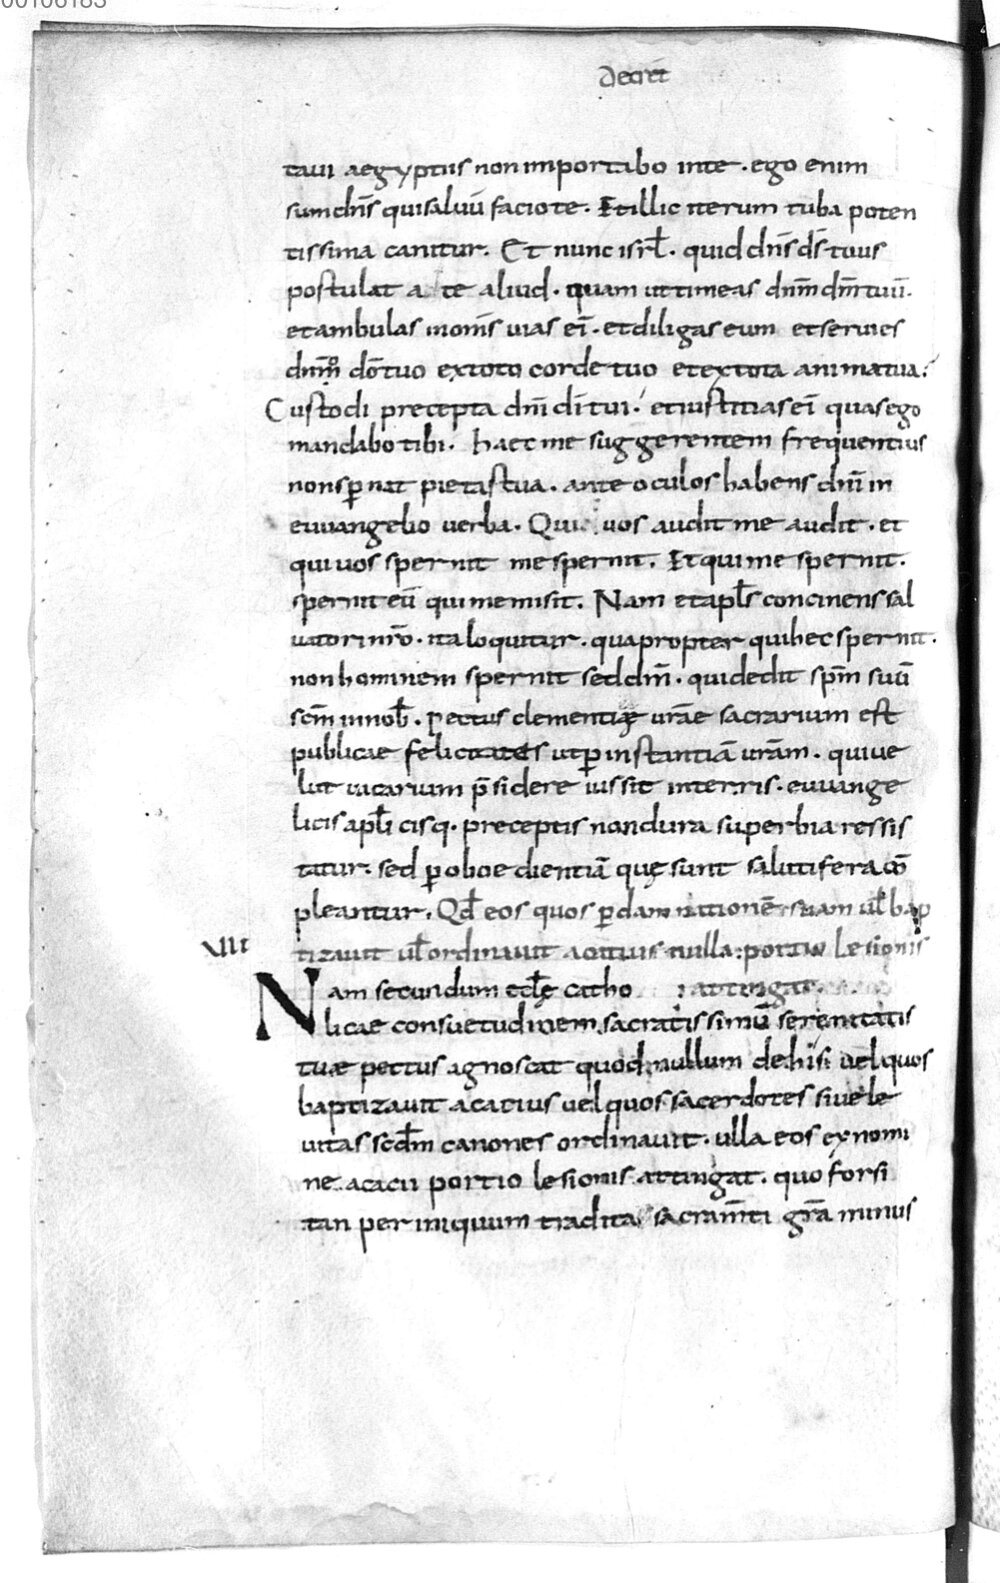 00106183
Decret
taui aegyptiis non importabo inte . ego enim
sum dn̄s qui saluū facio te . Et illic iterum tuba poten
tissima canitur . Et nunc isrł . quid dn̄s ds̄ tuus
postulat a te aliud . quam ut timeas dnm̄ dm̄ tuū .
et ambulas in om̄s uias ei̅ . et diligas eum et seruies
dn̄o do̅ tuo ex toto corde tuo et ex tota anima tua .
Custodi precepta dnī di̅ tui . et iustitias ei̅ quas ego
mandabo tibi . haec me suggerentem frequentius
non sꝑnat pietas tua . ante oculos habens dnī in
euuangelio uerba . Qui uos audit me audit . et
qui uos spernit me spernit . Et qui me spernit .
spernit eū qui me misit . Nam et apłs concinens sal
uatori nr̄o . ita loquitur . quapropter qui hec spernit .
non hominem spernit sed dm̄ . qui dedit spm̄ suū
scm̄ in nob̄ . pectus clementiae urāe sacrarium est
publicae felicitates ut ꝑ instantiā urām . qui ue
lut uicarium p̄sidere iussit interris . euuange
licis aplicisq . preceptis non dura superbia ressis
titur . sed ꝑ oboedientiā quę sunt salutifera cō
pleantur . Qd̄ eos quos ꝑ damnationē suam uł bap
tizauit uł ordinauit acitius nulla portio lesionis
VIII
attingat .
Nam secundum ecłę catho
licae consuetudinem sacratissimū serenitatis
tuae pectus agnoscat quod nullum de his uel quos
baptizauit acatius uel quos sacerdotes siue le
uitas scdm̄ canones ordinauit . ulla eos ex nomi
ne acacii portio lesionis attingat . quo forsi
tan per iniquum tradita sacram̄ti gr̄a minus